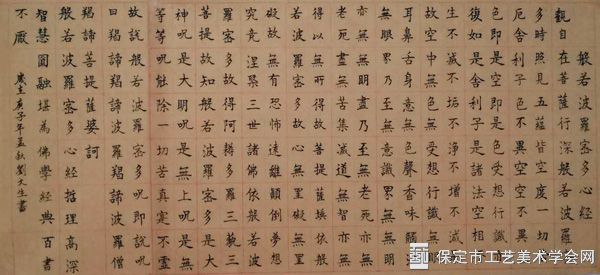 般若波羅蜜多心經
觀自在菩薩行深般若波羅蜜
多時照見五蘊皆空度一切苦
厄舍利子色不異空空不異色
色即是空空即是色受想行識亦
復如是舍利子是諸法空相不
生不滅不垢不淨不增不減是
故空中無色無受想行識無眼
耳鼻舌身意無色聲香味觸法
無眼界乃至無意識界無無明亦
無無明盡乃至無老死亦無
老死盡無苦集滅道無智亦無
得以無所得故菩提薩埵依般
若波羅蜜多故心無罣礙無罣
礙故無有恐怖遠離顛倒夢想
究竟涅槃三世諸佛依般若波
羅蜜多故得阿耨多羅三藐三
菩提故知般若波羅蜜多是大
神呪是大明呪是無上呪是無
等等呪能除一切苦真實不虛
故說般若波羅蜜多呪即說呪
曰羯諦羯諦波羅羯諦波羅僧
羯諦菩提薩婆訶
般若波羅蜜多心經哲理高深
智慧圓融堪為佛學經典百書
不厭
歲在庚子年孟秋劉文生書
保定市工艺美术学会网